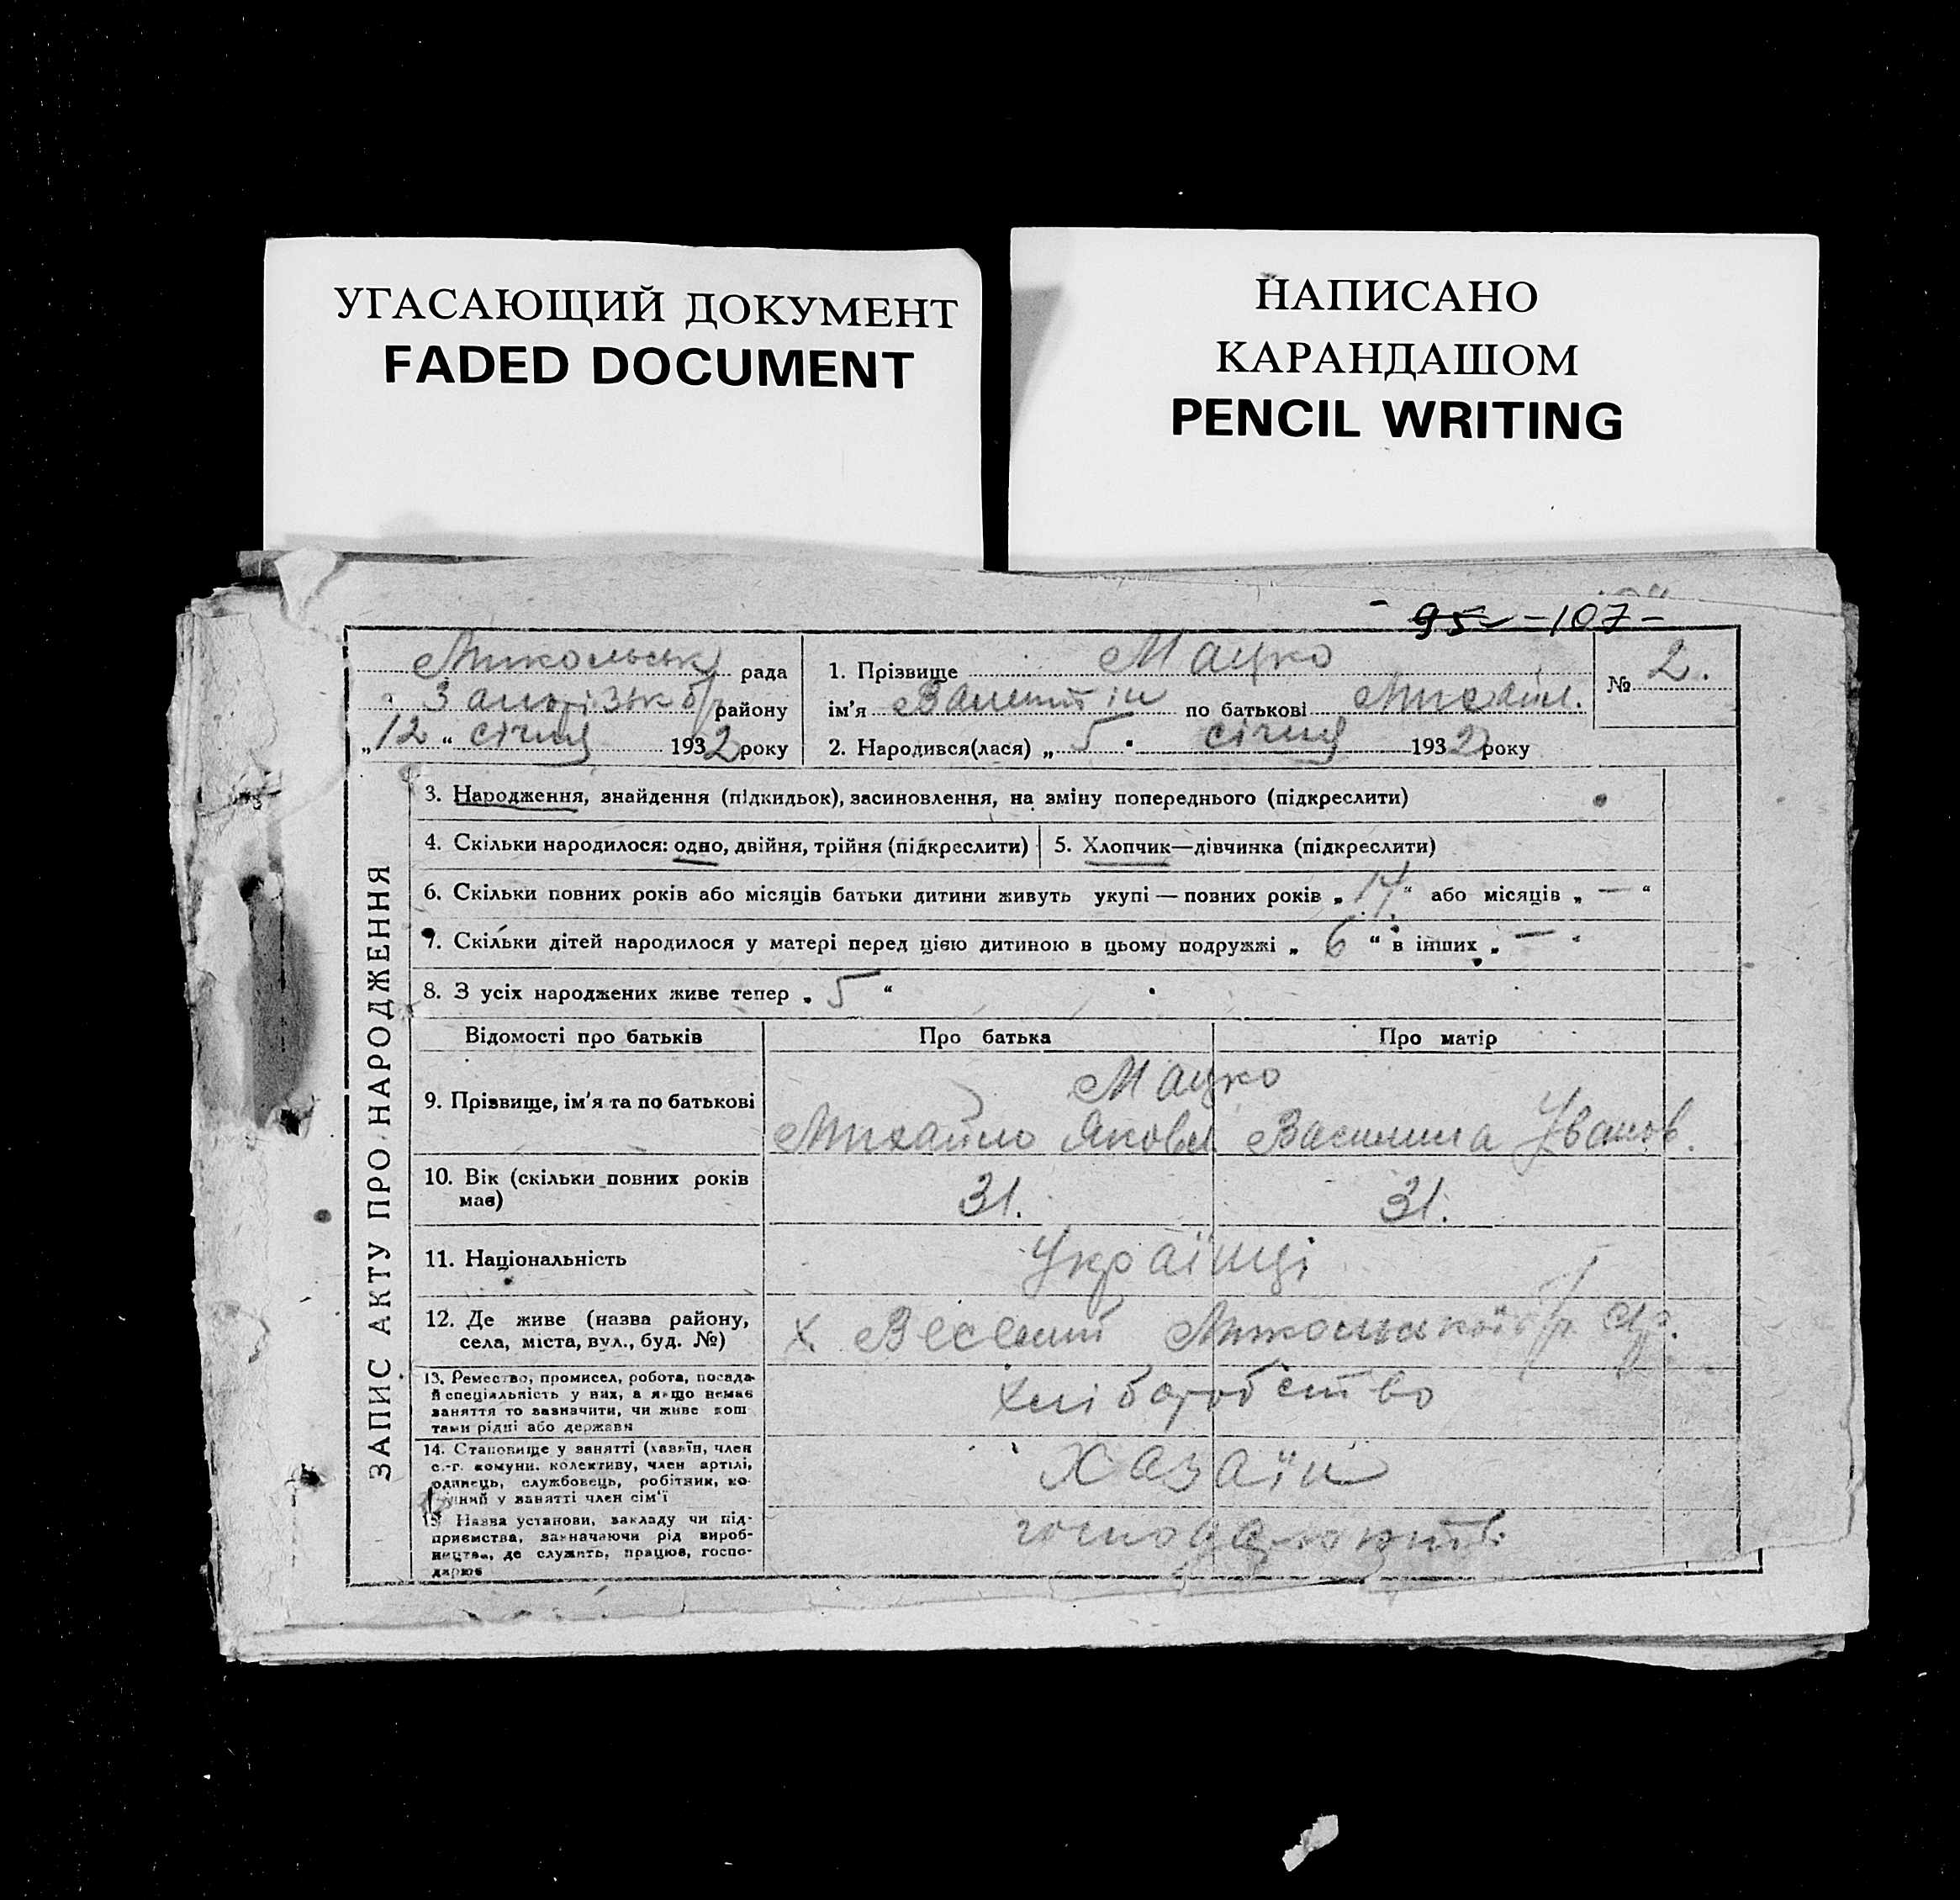 УГАСАЮЩИЙ ДОКУМЕНТ
FADED DOCUMENT
НАПИСАНО
КАРАНДАШОМ
PENCIL WRITING
95 -107-
Микольськ рада
Запорізьк району
„12“ січня 1932 року
1. Прізвище Мацко
ім'я Валентін по батькові Михайл.
№ 2.
2. Народився(лася) „5“ січня 1932 року
ЗАПИС АКТУ ПРО НАРОДЖЕННЯ
3. Народження, знайдення (підкидьок), засиновлення, на зміну попереднього (підкреслити)
4. Скільки народилося: одно, двійня, трійня (підкреслити)
5. Хлопчик—дівчинка (підкреслити)
6. Скільки повних років або місяців батьки дитини живуть укупі — повних років „14“ або місяців „—“
7. Скільки дітей народилося у матері перед цією дитиною в цьому подружжі „6“ в інших „—“
8. З усіх народжених живе тепер „5“
Відомості про батьків
Про батька
Про матір
9. Прізвище, ім'я та по батькові
Мацко
Михайло Яковл. Василина Іванов.
10. Вік (скільки повних років має)
31.
31.
11. Національність
Українці
12. Де живе (назва району,
села, міста, вул., буд. №)
х. Веселий Микольської
13. Ремество, промисел, робота, посада
й спеціяльність у них, а якщо немає
заняття то зазначити, чи живе кош
тами рідні або держави
хліборобство
14. Становище у занятті (хазяїн, член
с.-г. комуни, колективу, член артілі,
одинець, службовець, робітник, по-
у занятті член сім'ї
Хазаїн
15. Назва установи, закладу чи під-
приємства, зазначаючи рід вироб-
ництва, де служить, працює, госпо-
дарює
господарюють